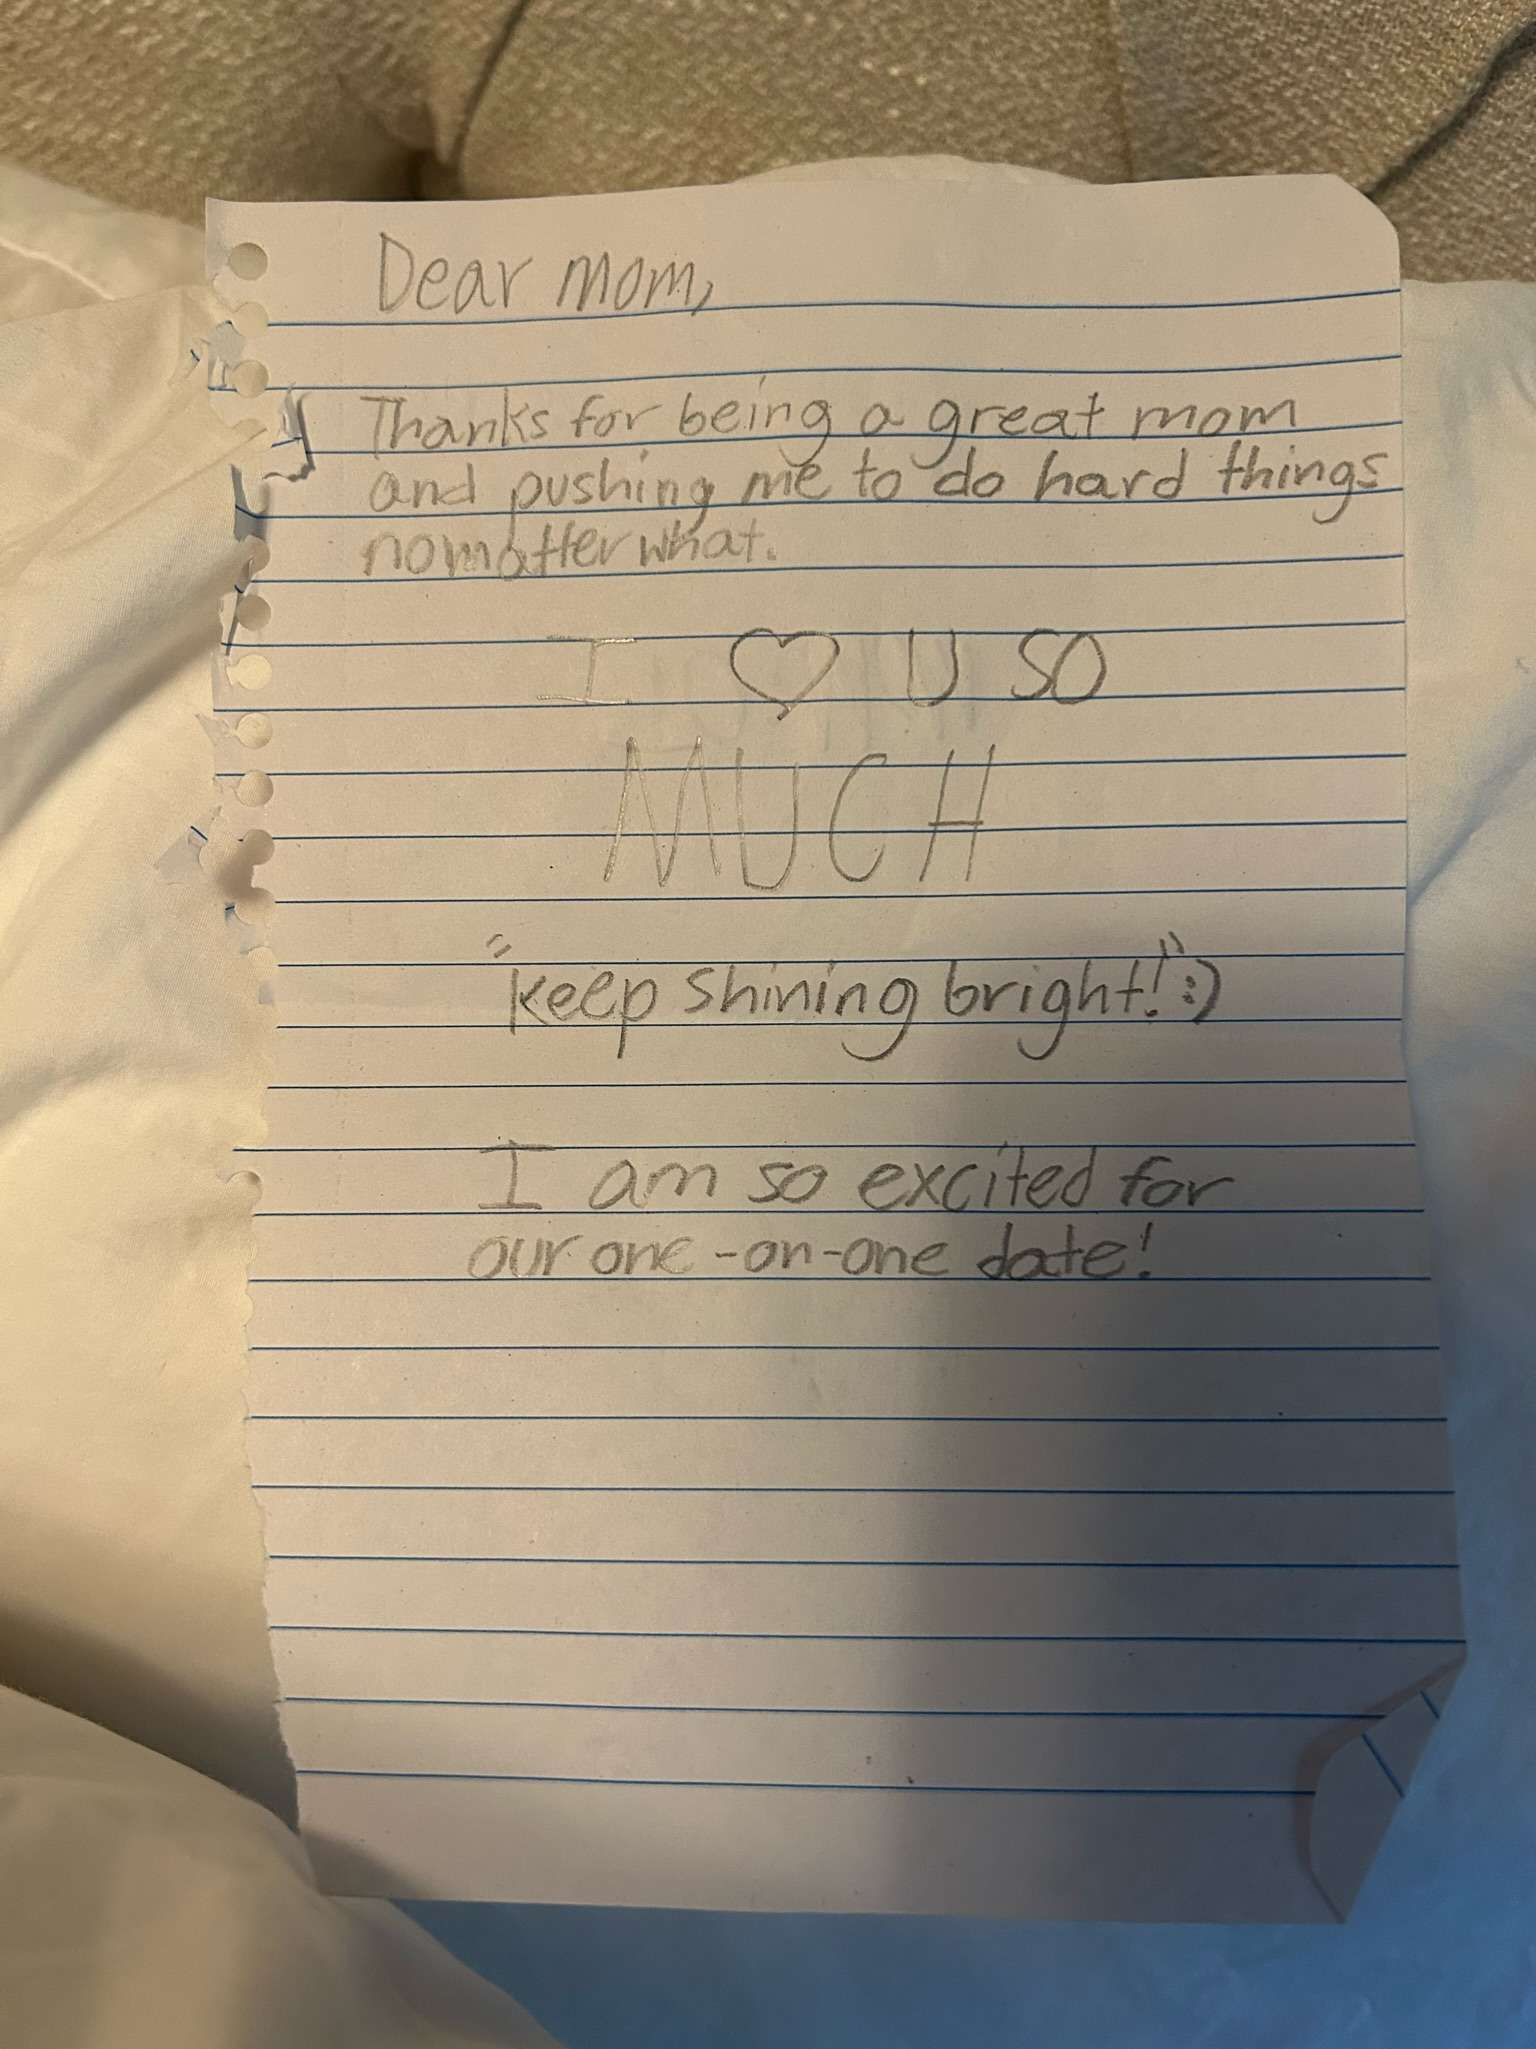 Dear mom,
Thanks for being a great mom
and pushing me to do hard things
nomatter what.
I ♡ U SO
MUCH
"keep shining bright!" :)
I am so excited for
our one-on-one date!